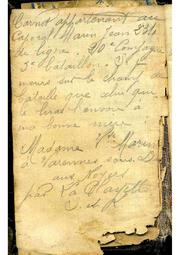 Carnet appartenant au
Caporal Marin Jean 234
de ligne. 20e Compagnie
5e bataillon. Si je
meurs sur le champ de
bataille que celui qui
le lira l'envoie à
ma bonne mère
Madame Vve Marin
à Varennes sous
aux Noyes
par La Clayette
S. et L.